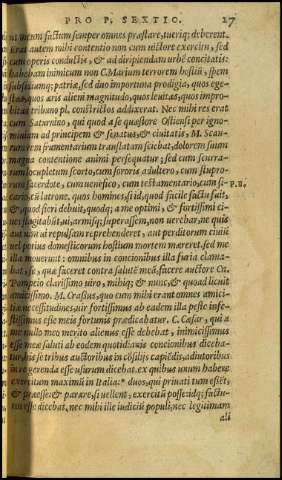 PRO P. SEXTIO. 27
meum factum semper omnes præstare, tueriq; deberent.
Erat autem mihi contentio non cum uictore exercitu, sed
cum operis conductis, & ad diripiendam urbē concitatis:
habebam inimicum non C. Marium terrorem hostiū, spem
subsidiumq; patriæ, sed duo importuna prodigia, quos ege-
stas, quos æris alieni magnitudo, quos leuitas, quos impro-
bitas tribuno pl. constrictos addixerat. Nec mihi res erat
cum Saturnino, qui quod a se quæstore Ostiensi per igno-
miniam ad principem & senatus, & ciuitatis, M. Scau-
rum rem frumentariam translatam sciebat, dolorem suum
magna contentione animi persequatur; sed cum scurra-
rum locupletum scorto, cum sororis adultero, cum stupro-
rum sacerdote, cum uenefico, cum testamentario, cum si-
cario, cū latrone. quos homines, si id, quod facile factu fuit, P.II.
& quod fieri debuit, quodq; a me optimi, & fortißimi ci-
ues flagitabāt, ui, armisq; superassem, non uerebar, ne quis
aut uim ui repulsam reprehenderet, aut perditorum ciuiū
uel potius domesticorum hostium mortem mæreret. sed me
illa mouerunt: omnibus in concionibus illa furia clama-
bat, se, quæ faceret contra salutē meā, facere auctore Cn.
Pompeio clarißimo uiro, mihiq; & nunc, & quoad licuit
amicißimo. M. Crassus, quo cum mihi erant omnes amici-
tiæ necessitudines, uir fortißimus ab eadem illa peste infe-
stißimus esse meis fortunis prædicabatur. C. Cæsar, qui a
me nullo meo merito alienus esse debebat, inimicißimus
esse meæ saluti ab eodem quotidianis concionibus diceba-
tur. his se tribus auctoribus in cōsilijs capiēdis, adiutoribus
in re gerenda esse usurum dicebat. ex quibus unum habere
exercitum maximū in Italia: * duos, qui priuati tum essēt,
& præesse & parare, si uellent, exercitū posse: idq; factu-
ros esse dicebat. nec mihi ille iudiciū populi, nec legitimam
ali